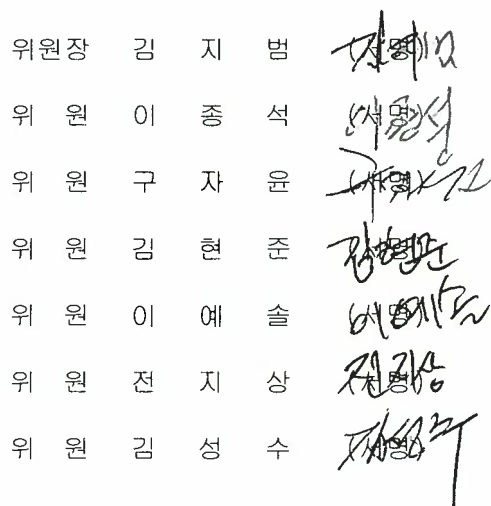 위원장 김 지 범 (서명)
위 원 이 종 석 (서명)
위 원 구 자 윤 (서명)
위 원 김 현 준 (서명)
위 원 이 예 솔 (서명)
위 원 전 지 상 (서명)
위 원 김 성 수 (서명)